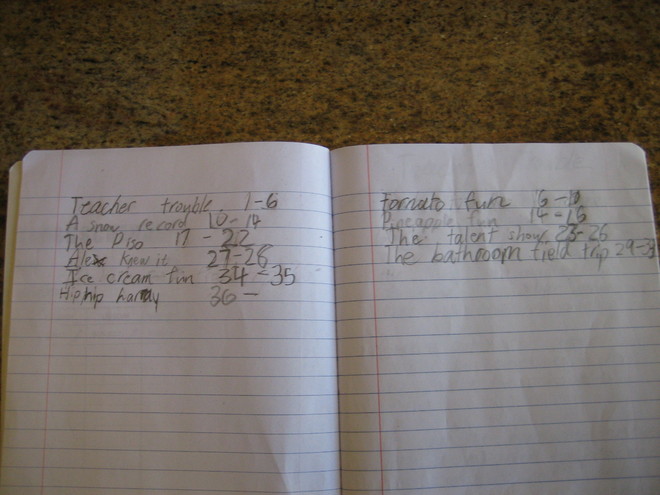 Teacher trouble 1-6
A snow record 10-14
The Diso 17 - 22
Alex knew it 27-28
Ice cream fun 34 - 35
Hip hip harray 36 -
Tornato fun 6 - 10
Pineapple fun 14 - 16
The talent show 23-26
The bathroom field trip 29-